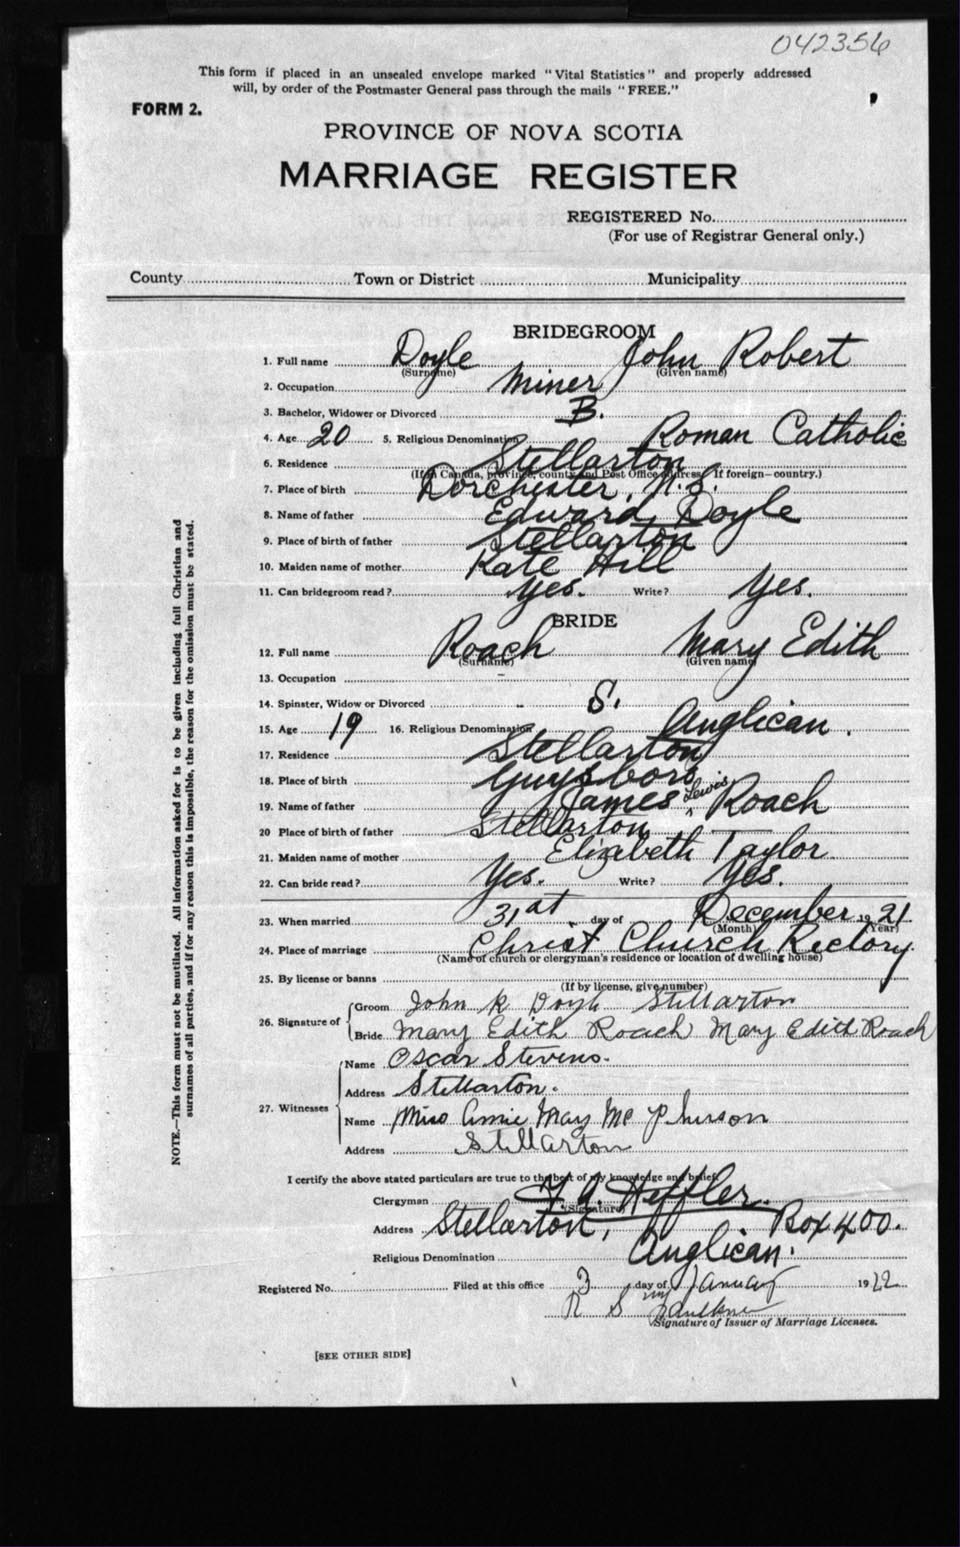 042356
This form if placed in an unsealed envelope marked "Vital Statistics" and properly addressed
will, by order of the Postmaster General pass through the mails "FREE."
FORM 2.
PROVINCE OF NOVA SCOTIA
MARRIAGE REGISTER
REGISTERED No.
(For use of Registrar General only.)
County Town or District Municipality
BRIDEGROOM
1. Full name Doyle John Robert
(Surname) (Given name)
2. Occupation Miner
3. Bachelor, Widower or Divorced B.
4. Age 20 5. Religious Denomination Roman Catholic
6. Residence Stellarton
(If in Canada, province, county and Post Office address. If foreign—country.)
7. Place of birth Dorchester, N.S.
8. Name of father Edward Doyle
9. Place of birth of father Stellarton
10. Maiden name of mother Kate Hill
11. Can bridegroom read? Yes. Write? Yes.
BRIDE
12. Full name Roach Mary Edith
(Surname) (Given name)
13. Occupation –
14. Spinster, Widow or Divorced S.
15. Age 19 16. Religious Denomination Anglican.
17. Residence Stellarton
18. Place of birth Guysboro
19. Name of father James Lewis Roach
20 Place of birth of father Stellarton
21. Maiden name of mother Elizabeth Taylor
22. Can bride read? Yes. Write? Yes.
23. When married 31st day of December 1921
(Month) (Year)
24. Place of marriage Christ Church Rectory.
(Name of church or clergyman's residence or location of dwelling house)
25. By license or banns
(If by license, give number)
26. Signature of Groom John R Doyle Stellarton
Bride Mary Edith Roach Mary Edith Roach
27. Witnesses Name Oscar Stevens.
Address Stellarton.
Name Miss Annie May McPherson
Address Stellarton
I certify the above stated particulars are true to the best of my knowledge and belief.
Clergyman Heffler.
(Signature)
Address Stellarton, Box 400.
Religious Denomination Anglican.
Registered No. Filed at this office 3 day of January 1922
R S Faulkner
Signature of Issuer of Marriage Licenses.
[SEE OTHER SIDE]
NOTE.—This form must not be mutilated. All information asked for is to be given including full Christian and
surnames of all parties, and if for any reason this is impossible, the reason for the omission must be stated.